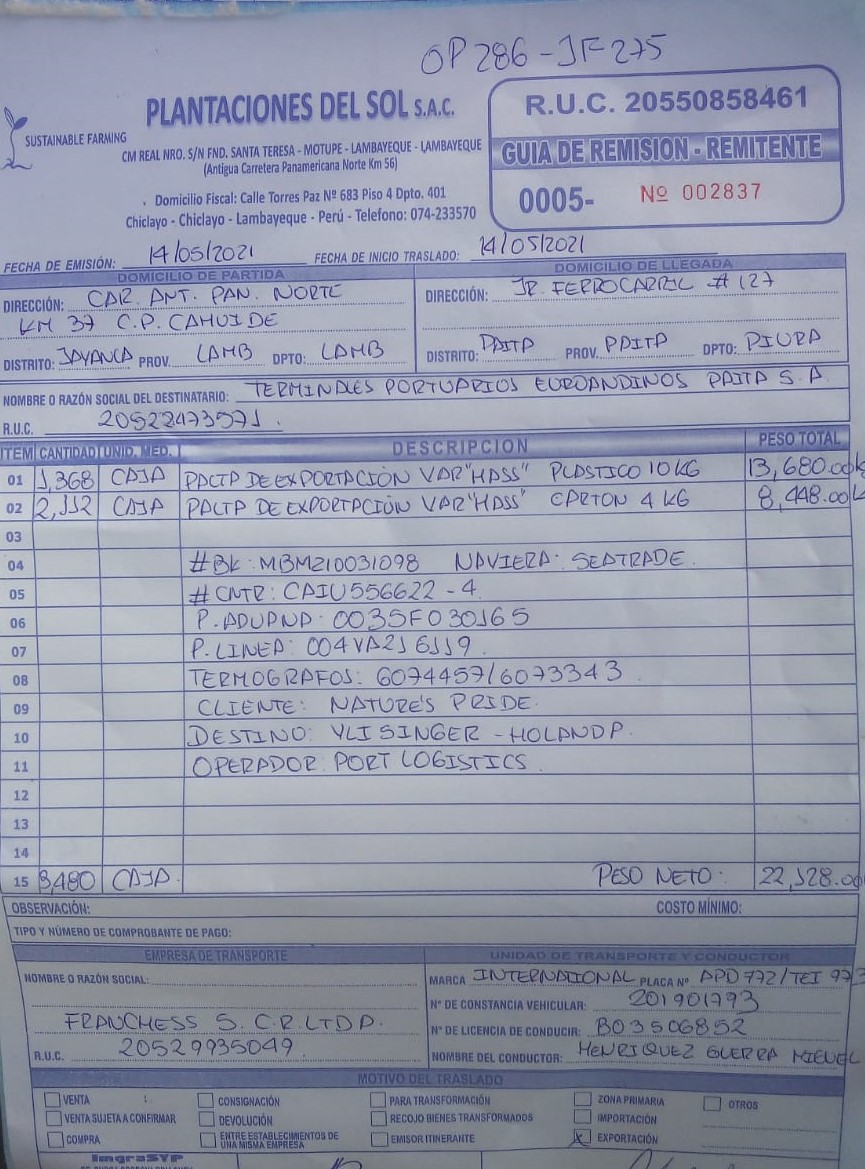 OP 286 - JF 275
PLANTACIONES DEL SOL S.A.C.
SUSTAINABLE FARMING
CM REAL NRO. S/N FND. SANTA TERESA - MOTUPE - LAMBAYEQUE - LAMBAYEQUE
(Antigua Carretera Panamericana Norte Km 56)
Domicilio Fiscal: Calle Torres Paz Nº 683 Piso 4 Dpto. 401
Chiclayo - Chiclayo - Lambayeque - Perú - Telefono: 074-233570
R.U.C. 20550858461
GUIA DE REMISION - REMITENTE
0005- Nº 002837
FECHA DE EMISIÓN: 14/05/2021 FECHA DE INICIO TRASLADO: 14/05/2021
DOMICILIO DE PARTIDA
DIRECCIÓN: CAR. ANT. PAN. NORTE
KM 37 C.P. CAHUIDE
DISTRITO: JAYANCA PROV. LAMB DPTO: LAMB
DOMICILIO DE LLEGADA
DIRECCIÓN: JR. FERROCARRIL # 127
DISTRITO: PAITA PROV. PAITA DPTO: PIURA
NOMBRE O RAZÓN SOCIAL DEL DESTINATARIO: TERMINALES PORTUARIOS EUROANDINOS PAITA S.A
R.U.C. 20522473571.
ITEM CANTIDAD UNID. MED. DESCRIPCION PESO TOTAL
01 1,368 CAJA PALTA DE EXPORTACIÓN VAR "HASS" PLASTICO 10 KG 13,680.00k
02 2,112 CAJA PALTA DE EXPORTACIÓN VAR "HASS" CARTON 4 KG 8,448.00k
03
04 #BK: MBM210031098 NAVIERA: SEATRADE.
05 #CNTR: CAIU556622-4
06 P. ADUANA: 0035F030165
07 P. LINEA: 004VA216119
08 TERMOGRAFOS: 6074457/6073343
09 CLIENTE: NATURE'S PRIDE.
10 DESTINO: VLISINGER - HOLANDA.
11 OPERADOR: PORT LOGISTICS
12
13
14
15 3,480 CAJA. PESO NETO: 22,128.00k
OBSERVACIÓN: COSTO MÍNIMO:
TIPO Y NÚMERO DE COMPROBANTE DE PAGO:
EMPRESA DE TRANSPORTE
NOMBRE O RAZÓN SOCIAL:
FRANCHESS S.C.R.LTDA.
R.U.C. 20529935049
UNIDAD DE TRANSPORTE Y CONDUCTOR
MARCA INTERNATIONAL PLACA Nº APD 772/TEI 973
Nº DE CONSTANCIA VEHICULAR: 201901793
Nº DE LICENCIA DE CONDUCIR: B03506852
NOMBRE DEL CONDUCTOR: HENRIQUEZ GUERRA MIGUEL
MOTIVO DEL TRASLADO
VENTA CONSIGNACIÓN PARA TRANSFORMACIÓN ZONA PRIMARIA OTROS
VENTA SUJETA A CONFIRMAR DEVOLUCIÓN RECOJO BIENES TRANSFORMADOS IMPORTACIÓN
COMPRA ENTRE ESTABLECIMIENTOS DE UNA MISMA EMPRESA EMISOR ITINERANTE X EXPORTACIÓN
ImgraSYP